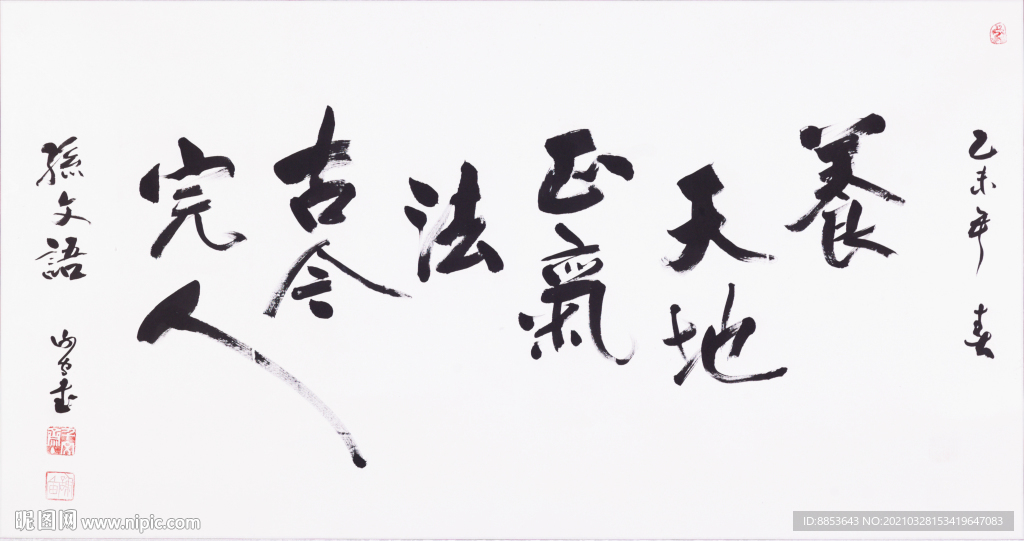 乙未年 春
養
天地
正氣
法
古今
完人
孫文語
昵图网 www.nipic.com
ID:8853643 NO:20210328153419647083